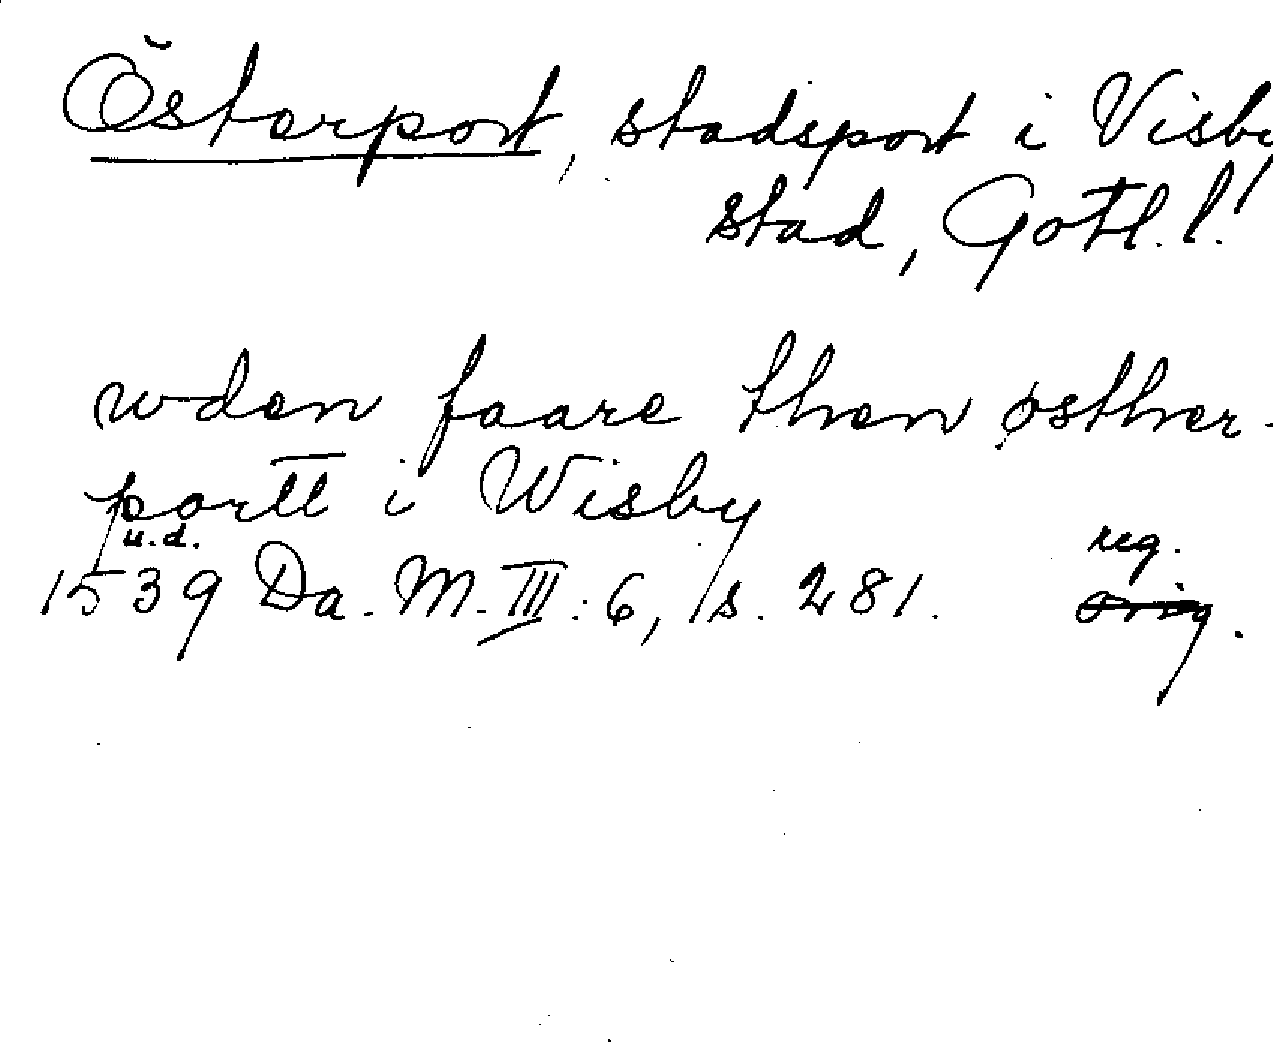 Österport, stadsport i Visby
stad, Gotl. l.
wden faare then østher-
portt i Wisby
u.d.
1539 Da. M. III: 6, s. 281.
reg.
Orig.